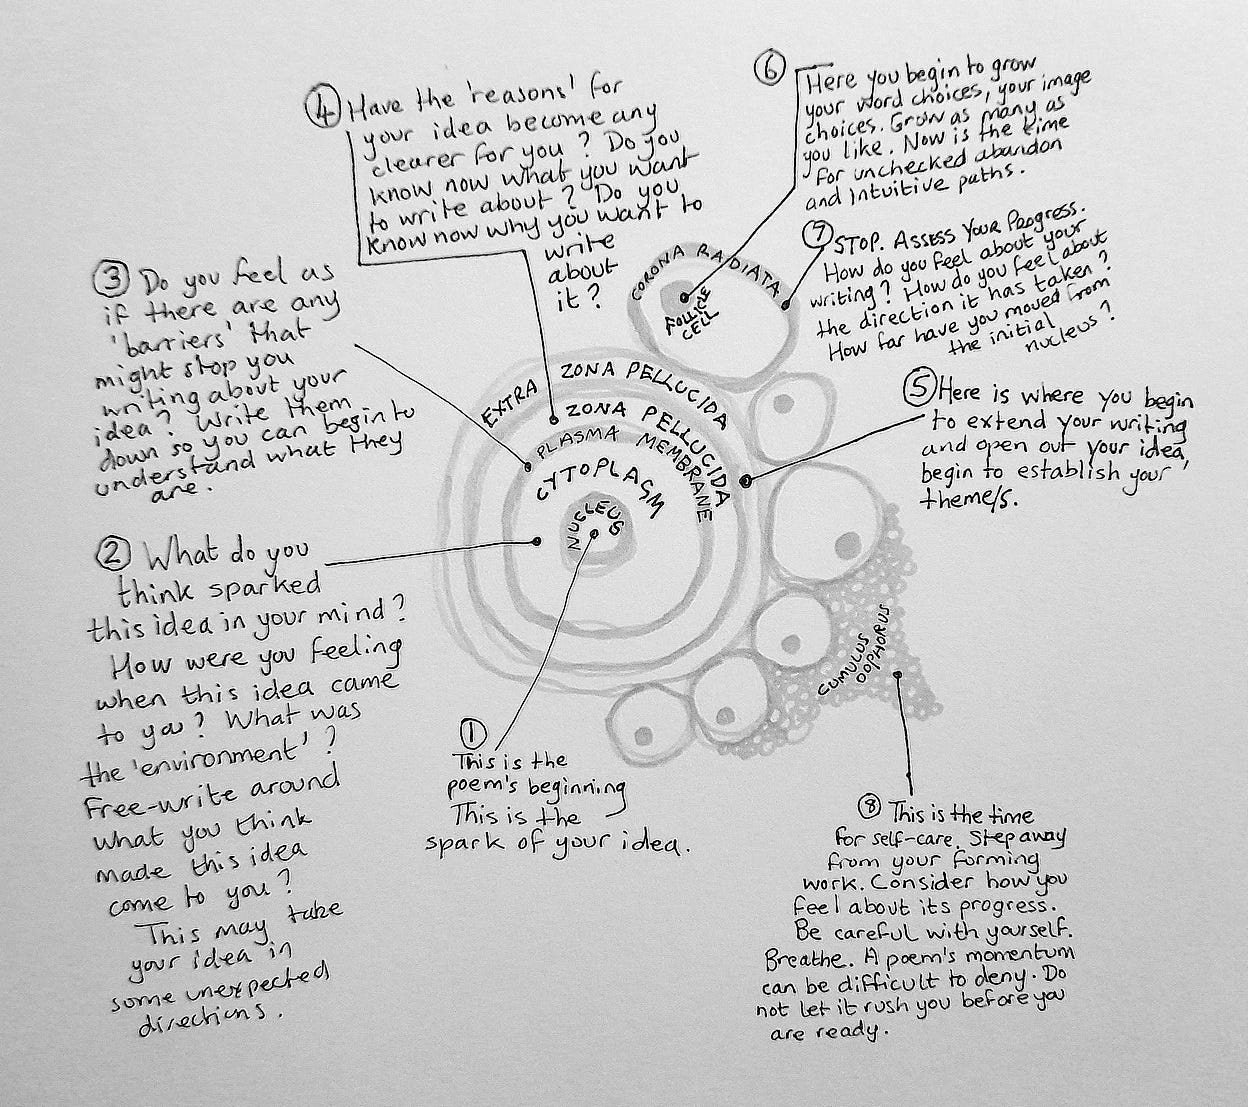 ① This is the
poem's beginning
This is the
spark of your idea.
② What do you
think sparked
this idea in your mind?
How were you feeling
when this idea came
to you? What was
the 'environment'?
Free-write around
what you think
made this idea
come to you?
This may take
your idea in
some unexpected
directions.
③ Do you feel as
if there are any
'barriers' that
might stop you
writing about your
idea? Write them
down so you can begin to
understand what they
are.
④ Have the 'reasons' for
your idea become any
clearer for you? Do you
know now what you want
to write about? Do you
know now why you want to
write
about
it?
⑤ Here is where you begin
to extend your writing
and open out your idea,
begin to establish your
theme/s.
⑥ Here you begin to grow
your word choices, your image
choices. Grow as many as
you like. Now is the time
for unchecked abandon
and intuitive paths.
⑦ STOP. ASSESS YOUR PROGRESS.
How do you feel about your
writing? How do you feel about
the direction it has taken?
How far have you moved from
the initial
nucleus?
⑧ This is the time
for self-care. Step away
from your forming
work. Consider how you
feel about its progress.
Be careful with yourself.
Breathe. A poem's momentum
can be difficult to deny. Do
not let it rush you before you
are ready.
CORONA RADIATA
FOLLICLE
CELL
EXTRA ZONA PELLUCIDA
ZONA PELLUCIDA
PLASMA MEMBRANE
CYTOPLASM
NUCLEUS
CUMULUS
OOPHORUS